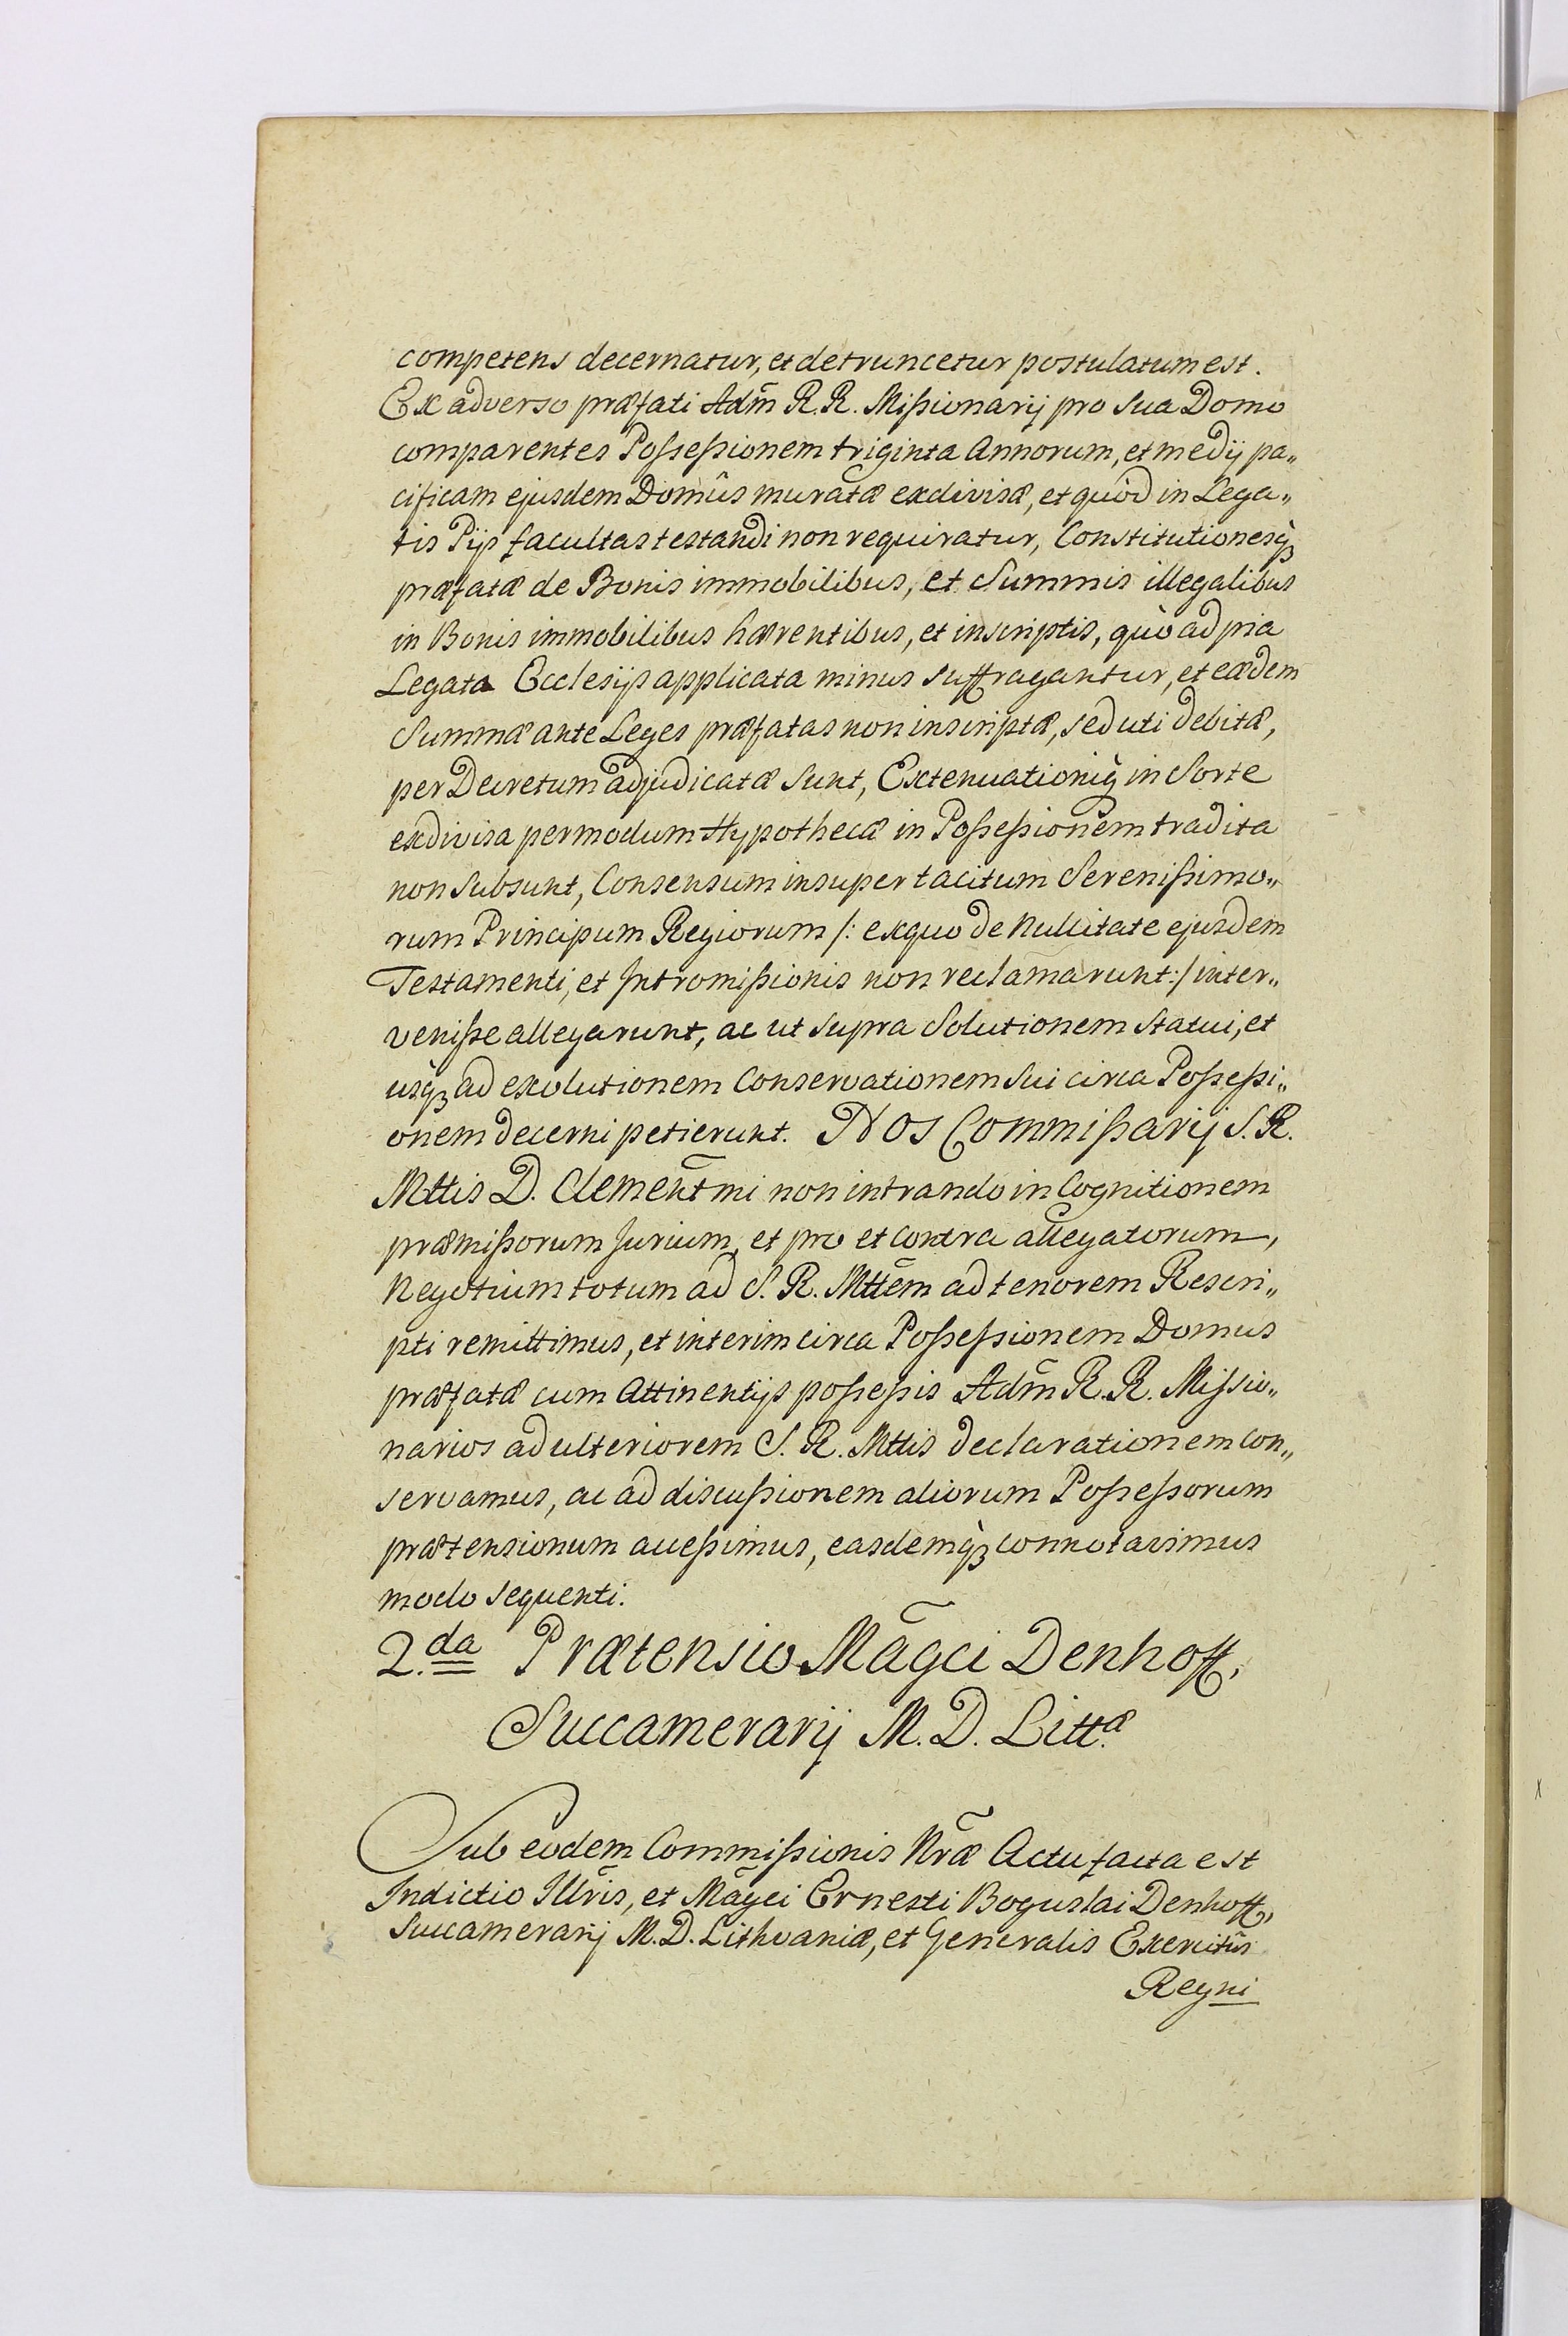 competens decernatur, et detruncetur postulatum est.
Ex adverso præfati Adm̃ R.R. Missionarij pro sua Domo
comparentes Possessionem triginta Annorum, et medij pa„
cificam ejusdem Domûs muratæ exdivisæ, et quòd in Lega„
tis Pijs facultas testandi non requiratur, Constitutionesq̀ꝫ
præfatæ de Bonis immobilibus, et Summis illegalibus
in Bonis immobilibus hærentibus, et inscriptis, quò ad pia
Legata Ecclesijs applicata minus suffragantur, et eædem
Summæ ante Leges præfatas non inscriptæ, sed uti debitæ,
per Decretum adjudicatæ sunt, Extenuationiq̀ꝫ in Sorte
exdivisa per modum Hypothecæ in Possessionem tradita
non subsunt, Consensum insuper tacitum Serenissimo„
rum Principum Regiorum /: ex quo de Nullitate ejusdem
Testamenti, et Intromissionis non reclamarunt :/ inter„
venisse allegarunt, ac ut supra Solutionem statui, et
usq̀ꝫ ad exolutionem Conservationem sui circa Possessi„
onem decerni petierunt. NOS Commissarij S. R.
Mttis D. Clement̃mi non intrando in Cognitionem
præmissorum Jurium, et pro et contra allegatorum,
Negotium totum ad S. R. Mttẽm ad tenorem Rescri„
pti remittimus, et interim circa Possessionem Domus
præfatæ cum Attinentijs possessis Adm̃ R.R. Missio„
narios ad ulteriorem S. R. Mttis declarationem con„
servamus, ac ad discussionem aliorum Possessorum
prætensionum accessimus, easdemq̀ꝫ connotavimus
modo sequenti.
2.da Prætensio Mãgci Denhoff,
Succamerarij M. D. Litt.æ
Sub eodem Commissionis Nr̃æ Actu facta est
Indictio Illr̃is, et Mãgci Ernesti Boguslai Denhoff,
Succamerarij M. D. Lithvaniæ, et Generalis Exercitûs
Regni